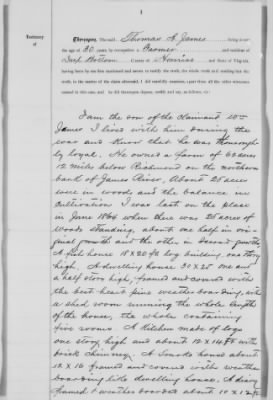 Testimony
of
Thereupon, The said Thomas A. James being over
the age of 30 years by occupation a Farmer and resident of
Deep Bottom County of Henrico and State of Virginia,
having been by me first examined and sworn to testify the truth, the whole truth and nothing but
the truth, in the matter of the claim aforesaid, I did carefully examine, apart from all the other witnesses
named in this case, and he did thereupon depose, testify and say, as follows, viz:
I am the son of the claimant Wm
James I lived with him during the
war and know that he was thorough-
ly loyal. He owned a farm of 60 acres
12 miles below Richmond on the northern
bank of James River, About 25 acres
were in woods and the balance in
cultivation I was last on the place
in June 1864 when there was 25 acres of
woods standing, about one half in ori-
ginal growth and the other in second growth
A fish house 18 x 20 ft log building one story
high, A dwelling house 30 x 25 one and
a half story high, framed and covered with
the best heart pine weather boarding, with
a shed room running the whole length
of the house, the whole containing
five rooms. A Kitchen made of logs
one story high and about 12 x 14 ft with
brick chimney. A Smoke house about
12 x 16 framed and covered with weather
boarding like dwelling house. A dairy
framed & weather boarded about 10 x 12 ft